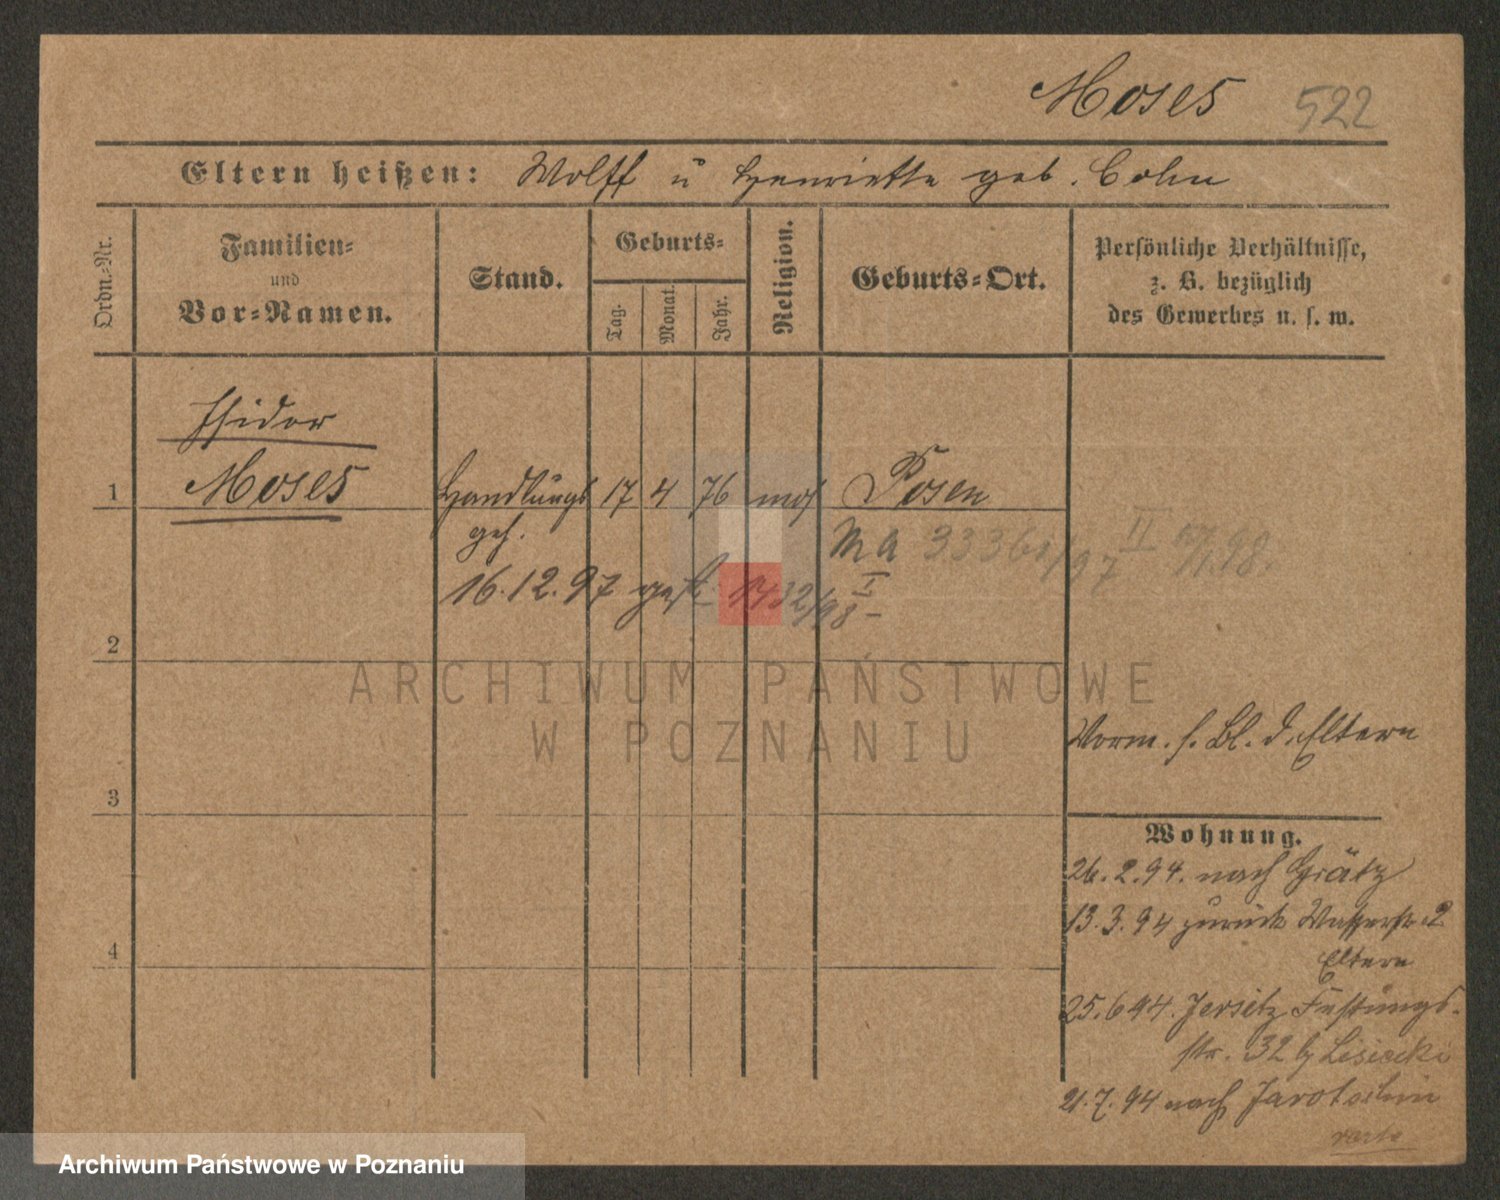 Moses 522
Eltern heißen: Wolff u Henriette geb. Cohn
Ordn.-Nr.
Familien-
und
Vor-Namen.
Stand.
Geburts-
Tag.
Monat.
Jahr.
Religion.
Geburts-Ort.
Persönliche Verhältnisse,
z. B. bezüglich
des Gewerbes u. s. w.
Isidor
1 Moses Handlungs 17 4 76 mos Posen
geh.
MA 3336 /97 II 98.
16.12.97 gest. 1432/98 I
2
ARCHIWUM PAŃSTWOWE
W POZNANIU
Vorm. s. Bl. d. Eltern
3
Wohnung.
26.2.94. nach Grätz
13.3.94 zurück Wasserstr. 2
Eltern
4
25.6.94. Jersitz Festungs-
str. 32 b/ Lisiecki
21.7.94 nach Jarotschin
verte
Archiwum Państwowe w Poznaniu